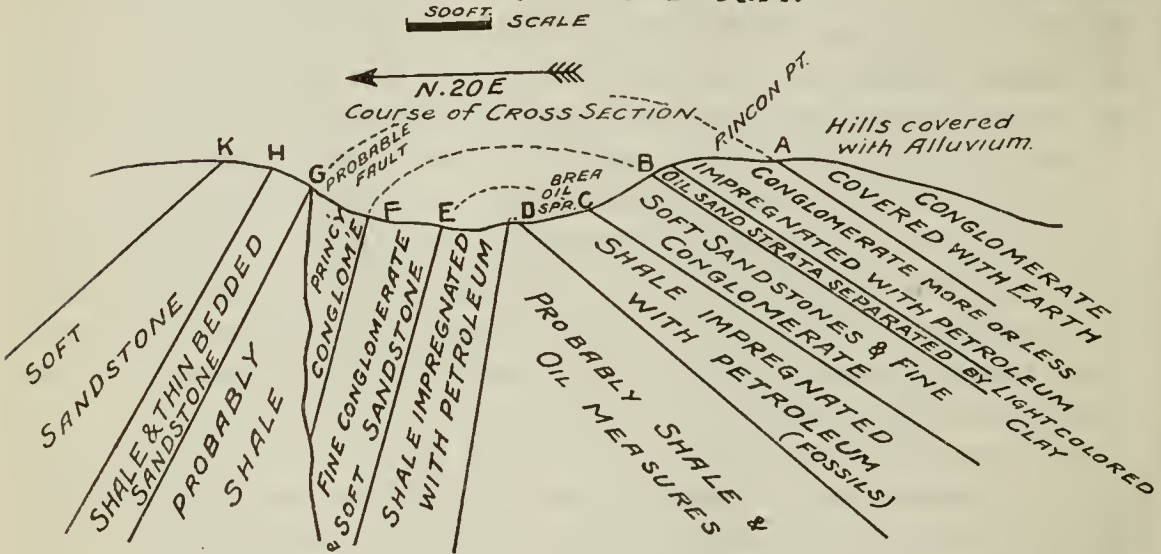 500FT. SCALE
N.20E
Course of CROSS SECTION
PINCON PT.
Hills covered
with Alluvium.
K
H
G
PROBABLE
FAULT
F
E
D
BREA
OIL
SPR.
C
B
A
SOFT
SANDSTONE
SHALE & THIN BEDDED
SANDSTONE
PROBABLY
SHALE
PRINC'Y
CONGLOM'E
FINE CONGLOMERATE
& SOFT SANDSTONE
SHALE IMPREGNATED
WITH PETROLEUM
PROBABLY SHALE &
OIL MEASURES
SHALE IMPREGNATED
WITH PETROLEUM
(FOSSILS)
SOFT SANDSTONES & FINE
CONGLOMERATE
OIL SAND STRATA SEPARATED BY LIGHT COLORED
CLAY
IMPREGNATED WITH PETROLEUM
CONGLOMERATE MORE OR LESS
COVERED WITH EARTH
CONGLOMERATE